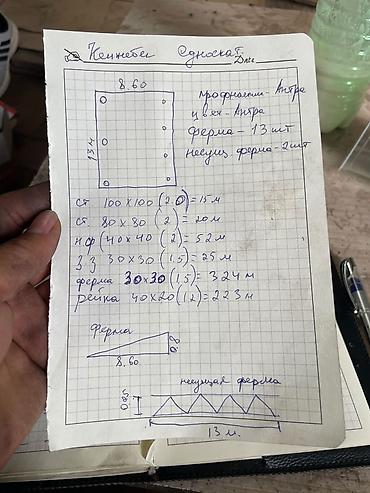 Односкат
Дни
8.60
13 м
профнастил - Антра
цвет - Антра
ферма - 13 шт
несущ. ферма - 2 шт
ст 100 х 100 (2.0) = 15 м
ст. 80 х 80 (2) = 20 м
нф (40 х 40 (2) = 52 м
30 х 30 (1.5) = 25 м
ферма 30 х 30 (1.5) = 324 м
рейка 40 х 20 (1.2) = 223 м
ферма
8.60
несущая ферма
13 м.